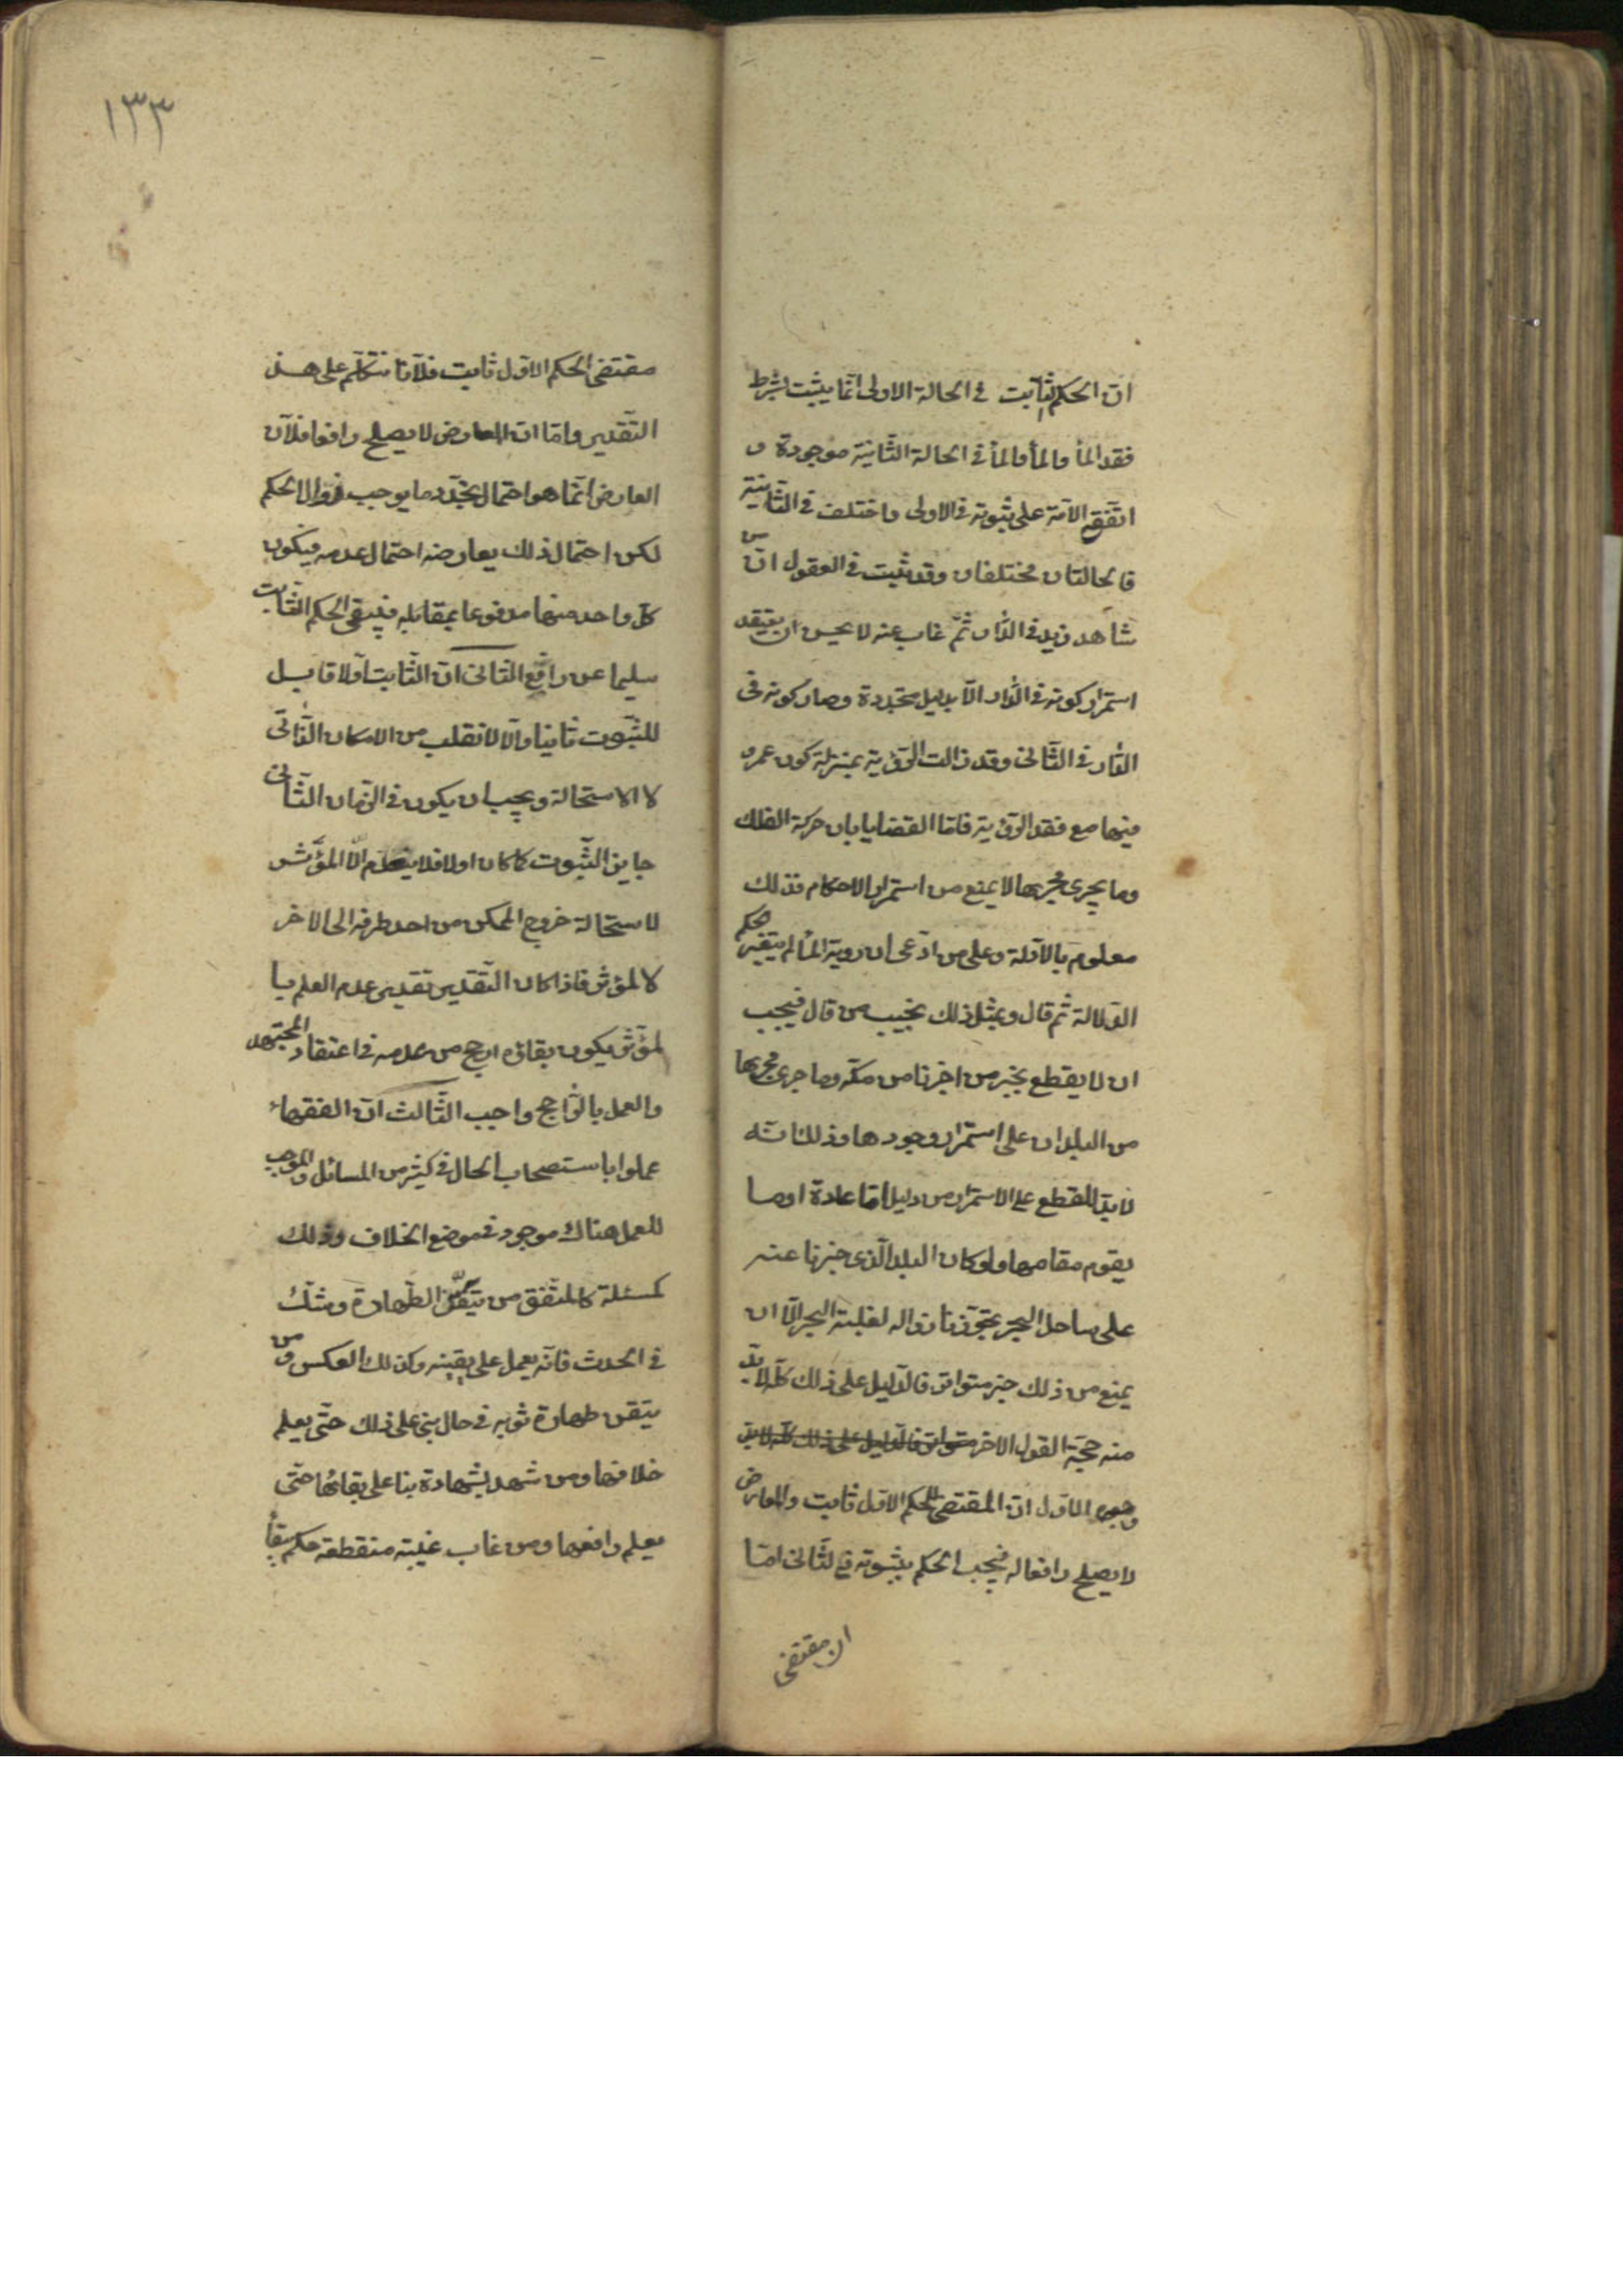 ان الحكم الثابت في الحالة الاولى انما يثبت بشرط
فقد الماء والماء في الحالة الثانية موجودة و
اتفق الامة على ثبوته في الاولى واختلف في الثانية
فالحالتان مختلفان وقد ثبت في العقول ان من
شاهد زيد في الدار ثم غاب عنه لا يحسن ان يعتقد
استمرار كونه في الدار الا بدليل متجددة وصار كونه في
الدار في الثاني وقد زالت الرؤية بمنزلة كون عمرو
فيها مع فقد الرؤية فاما القضايا بان حركة الفلك
وما يجرى مجريها لا يمنع من استمرار الاحكام فذلك
معلوم بالادلة وعلى من ادعى ان روية الماء لم يتغير الحكم
الدلالة ثم قال وبمثل ذلك نجيب من قال فيجب
ان لا يقطع بخبر من اخبرنا من مكة وما جرى مجريها
من البلدان على استمرار وجودها وذلك انه
لا بد للقطع على الاستمرار من دليل اما عادة او ما
يقوم مقامها ولو كان البلد الذى خبرنا عنه
على ساحل البحر تجوزنا زواله لغلبة البحر الا ان
يمنع من ذلك خبر متواتر فالدليل على ذلك كله لا بد
منه حجة القول الاخر متواتر فالدليل على ذلك كله لا بد
وجوه الاول ان المقتضى للحكم الاول ثابت والعارض
لا يصلح رافعا له فيجب الحكم بثبوته في الثاني اما
ان مقتضى
١٣٣
مقتضى الحكم الاول ثابت فلانا نتكلم على هذ
التقدير واما ان العارض لا يصلح رافعا فلان
العارض انما هو احتمال تجدد ما يوجب زوال الحكم
لكن احتمال ذلك يعارضه احتمال عدمه فيكون
كل واحد منهما مدفوعا بمقابله فيبقى الحكم الثابت
سليما عن رافع الثانى ان الثابت اولا قابل
للثبوت ثانيا والا لانقلب من الامكان الذاتى
لا الاستحالة ويجب ان يكون في الزمان الثانى
جايز الثبوت كما كان اولا فلا ينعدم الا المؤثر
لاستحالة خروج الممكن من احد طرفيه الى الاخر
لا لمؤثر فاذا كان التقدير تقدير عدم العلم با
لمؤثر يكون بقاؤه ارجح من عدمه في اعتقاد المجتهد
والعمل بالراجح واجب الثالث ان الفقهاء
عملوا باستصحاب الحال في كثير من المسائل والموجب
للعمل هناك موجود في موضع الخلاف وذلك
كمسئلة المتفق من تيقن الطهارة وشك
في الحدث فانه يعمل على يقينه وكذلك العكس ومن
تيقن طهارة ثوبه في حال بنى على ذلك حتى يعلم
خلافها ومن شهد بشهادة بنا على بقائها حتى
يعلم رافعها ومن غاب غيبة منقطعة حكم ببقاء